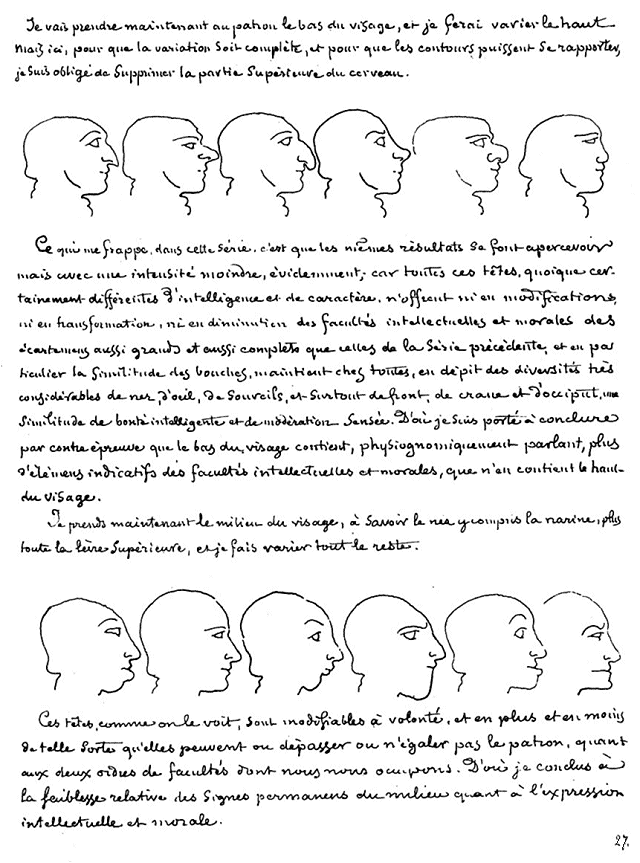 Je vais prendre maintenant au patron le bas du visage, et je ferai varier le haut
mais ici, pour que la variation soit complète, et pour que les contours puissent se rapporter,
je suis obligé de supprimer la partie supérieure du cerveau.
Ce qui me frappe, dans cette série, c'est que les mêmes résultats se font apercevoir
mais avec une intensité moindre, évidemment; car toutes ces têtes, quoique cer-
tainement différentes d'intelligence et de caractère, n'offrent ni en modifications,
ni en transformation, ni en diminution des facultés intellectuelles et morales des
écartemens aussi grands et aussi complets que celles de la série précédente, et en par
ticulier la similitude des bouches, maintient chez toutes, en dépit des diversités très
considérables de nez, d'œil, de sourcils, et surtout de front, de crane et d'occiput, une
similitude de bonté intelligente et de modération sensée. D'où je suis porté à conclure
par contre épreuve que le bas du visage contient, physiognomiquement parlant, plus
d'élémens indicatifs des facultés intellectuelles et morales, que n'en contient le haut
du visage.
Je prends maintenant le milieu du visage, à savoir le nez y compris la narine, plus
toute la lèvre supérieure, et je fais varier tout le reste.
Ces têtes, comme on le voit, sont modifiables à volonté, et en plus et en moins
de telle sorte qu'elles peuvent ou dépasser ou n'égaler pas le patron, quant
aux deux ordres de facultés dont nous nous occupons. D'où je conclus à
la faiblesse relative des signes permanens du milieu quant à l'expression
intellectuelle et morale.
27.